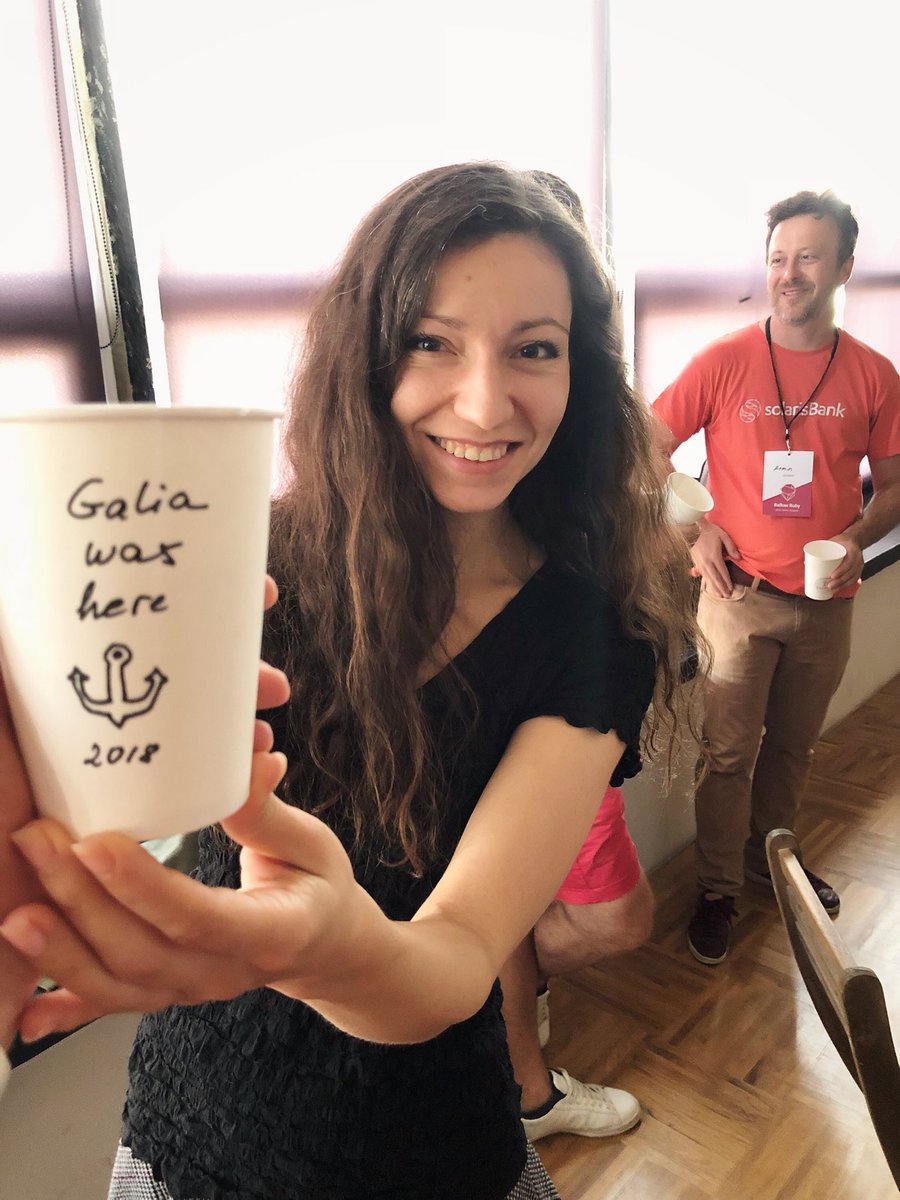 Galia
was
here
2018
solarisBank
Balkan Ruby